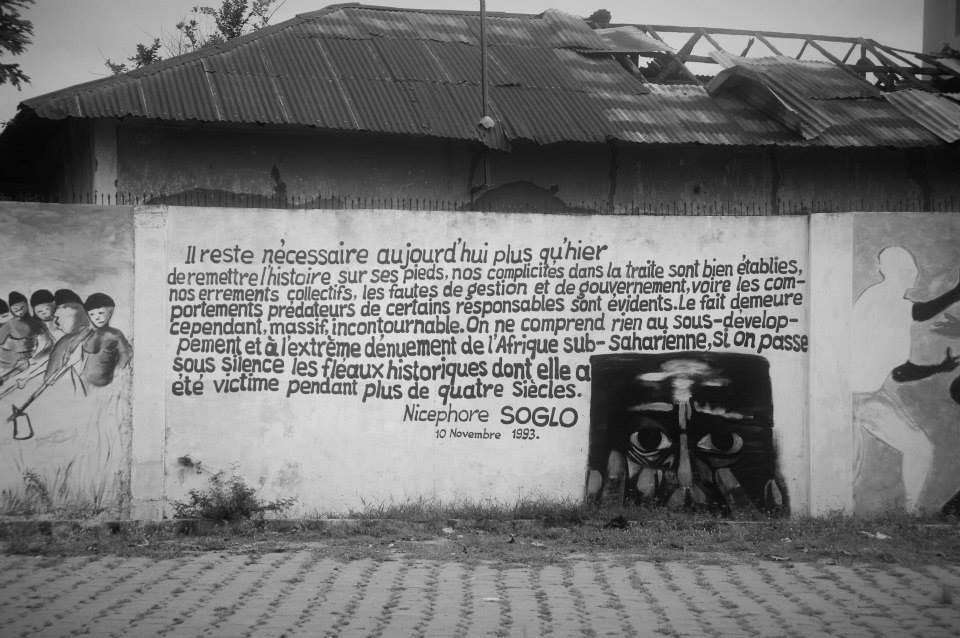 Il reste nécessaire aujourd'hui plus qu'hier
de remettre l'histoire sur ses pieds, nos complicités dans la traite sont bien établies,
nos errements collectifs, les fautes de gestion et de gouvernement, voire les com-
portements prédateurs de certains responsables sont évidents. Le fait demeure
cependant, massif, incontournable. On ne comprend rien au sous-develop-
pement et à l'extrême dénuement de l'Afrique sub-saharienne, si on passe
sous silence les fléaux historiques dont elle a
été victime pendant plus de quatre Siècles.
Nicephore SOGLO
10 Novembre 1993.